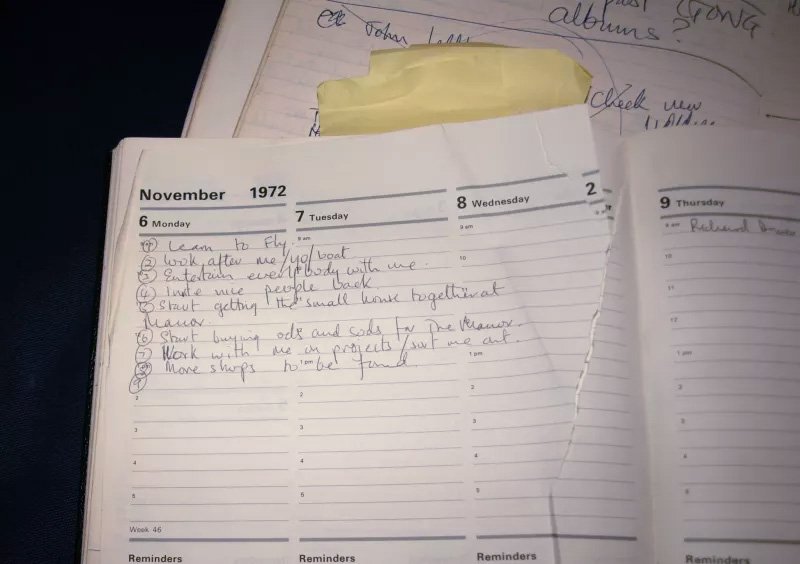 past GONG
albums?
John
Check new
November 1972
6 Monday
7 Tuesday
8 Wednesday
2
9 Thursday
9 am
9 am
9 am
Richard
① Learn to Fly.
② Look after me / yo / boat
③ Entertain everybody with me.
④ Invite nice people back.
⑤ Start getting the small house together at
Manor.
⑥ Start buying ods and sods for The Manor.
⑦ Work with me on projects / sort me out.
⑧ More shops to be found.
⑨
10
10
11
12
1 pm
1 pm
1 pm
2
2
2
2
3
3
3
3
4
4
4
4
5
5
5
5
Week 46
Reminders
Reminders
Reminders
Reminders